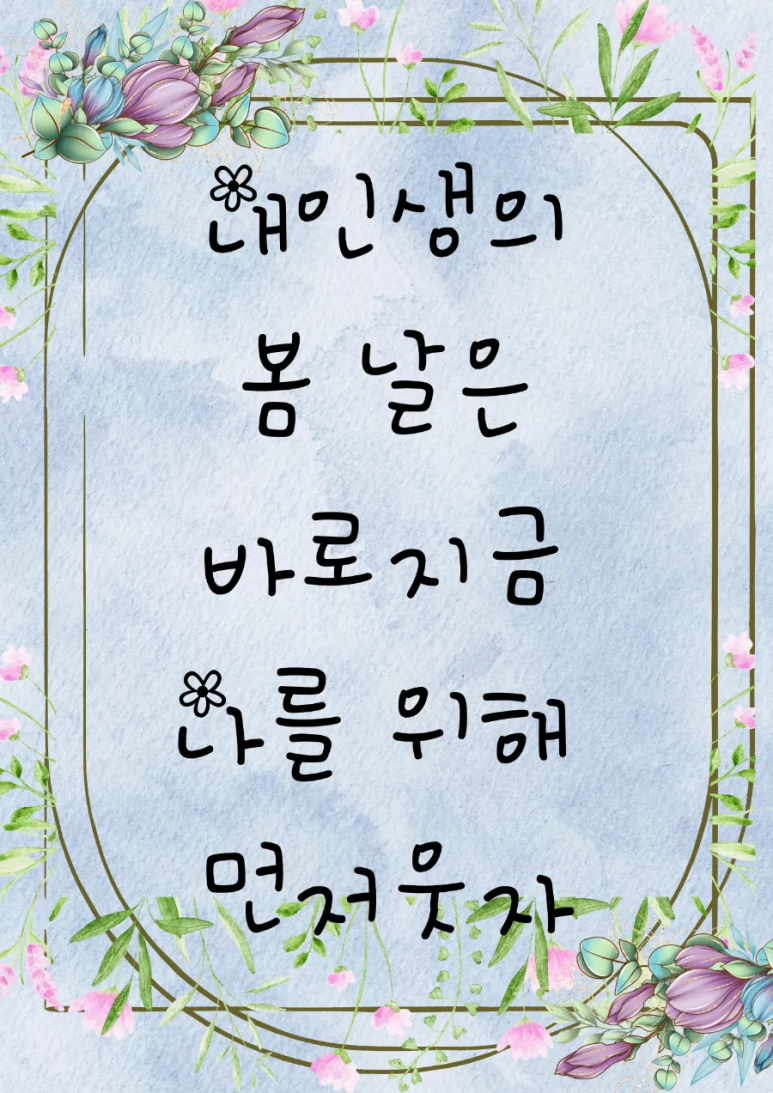 내인생의
봄 날은
바로지금
나를 위해
먼저웃자